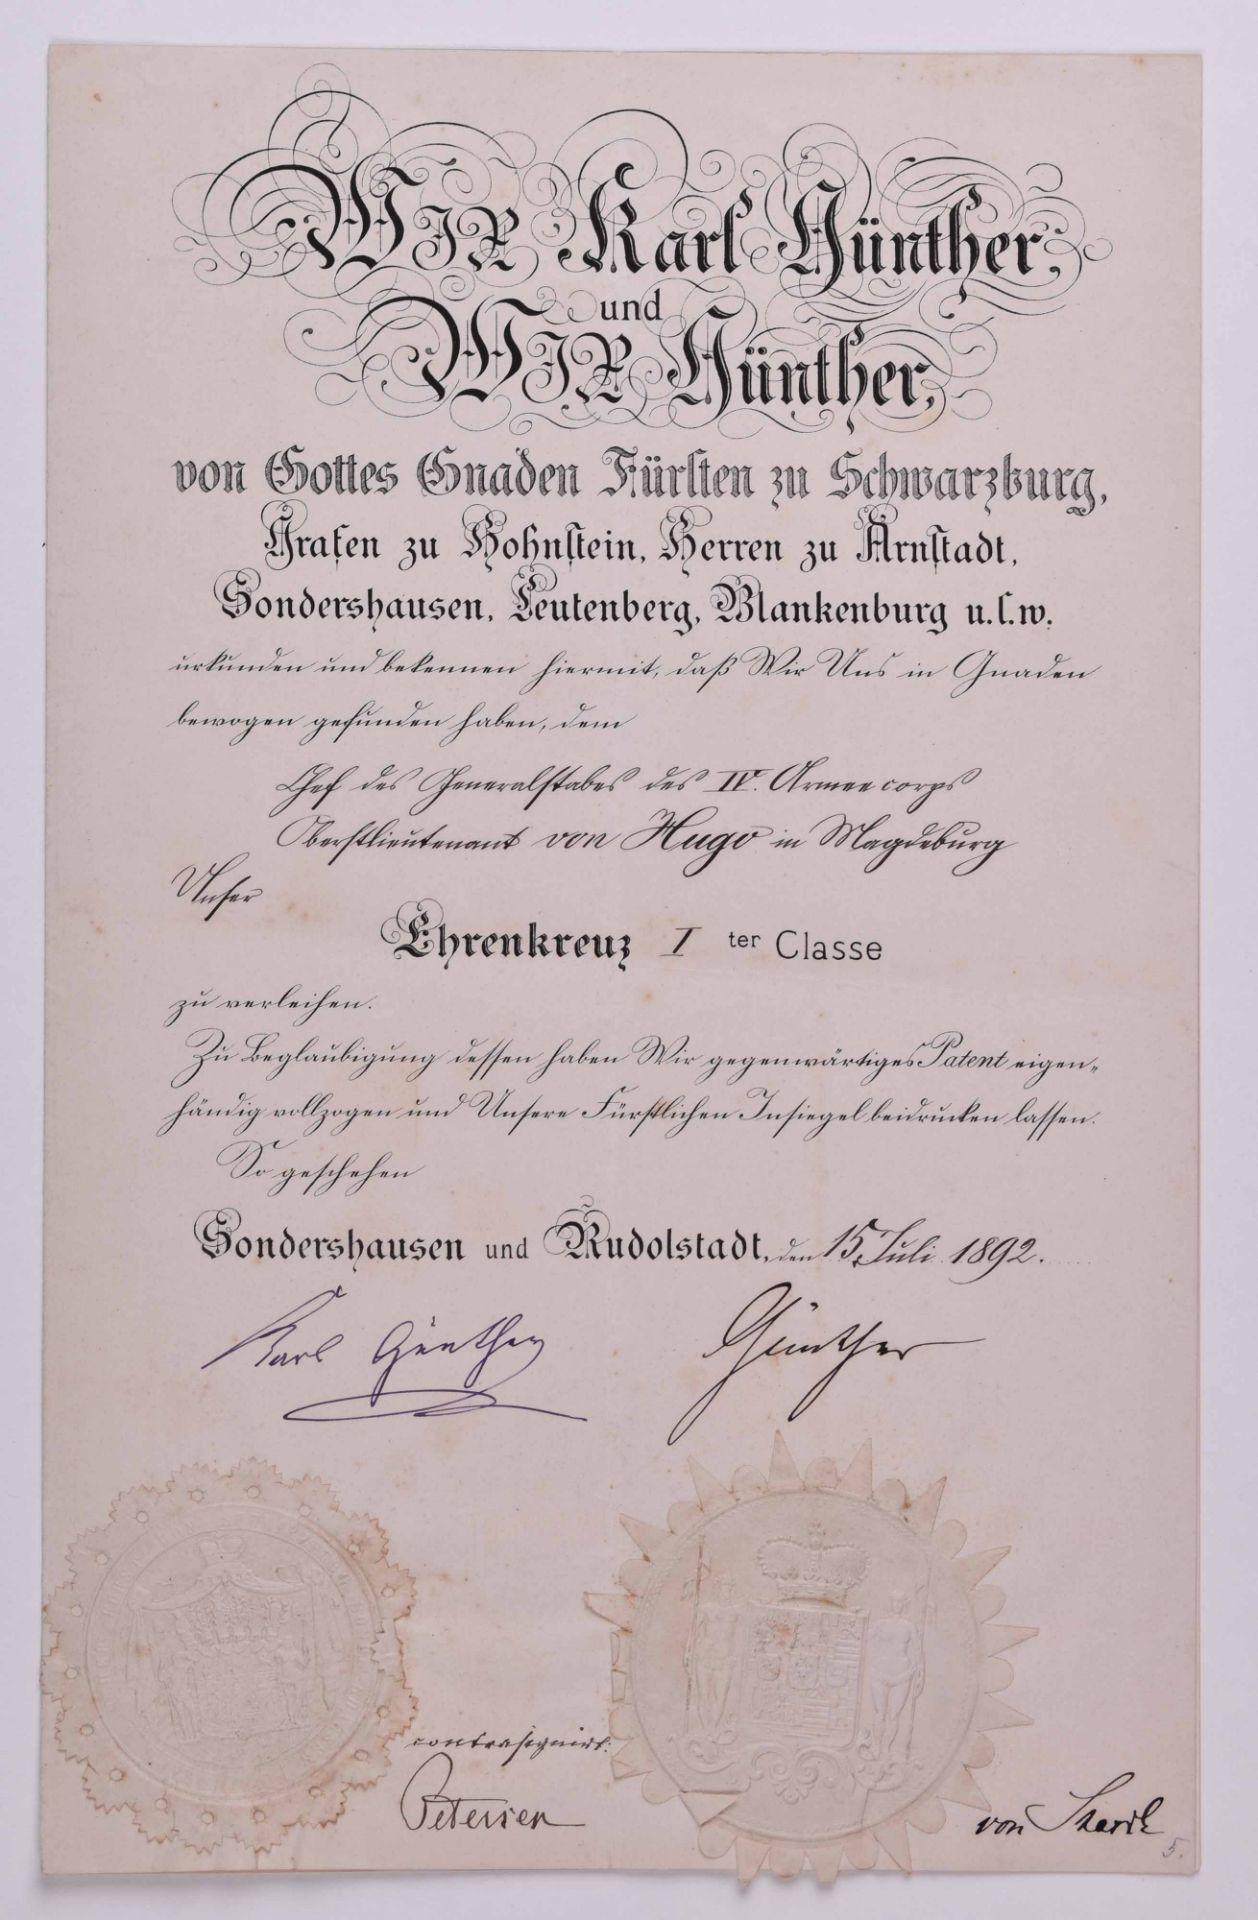 WIR Karl Günther,
und
WIR Günther,
von Gottes Gnaden Fürsten zu Schwarzburg,
Grafen zu Hohnstein, Herren zu Arnstadt,
Sondershausen, Leutenberg, Blankenburg u.s.w.
urkunden und bekennen hiermit, daß Wir Uns in Gnaden
bewogen gefunden haben, dem
Chef des Generalstabes des IV. Armeecorps
Oberstlieutenant von Hugo in Magdeburg
Unser
Ehrenkreuz I ter Classe
zu verleihen.
Zu Beglaubigung dessen haben Wir gegenwärtiges Patent eigen-
händig vollzogen und Unsere Fürstlichen Insiegel beidrucken lassen.
So geschehen
Sondershausen und Rudolstadt, den 15. Juli 1892.
Karl Günther Günther
contrasignirt:
Petersen von Starck
5.